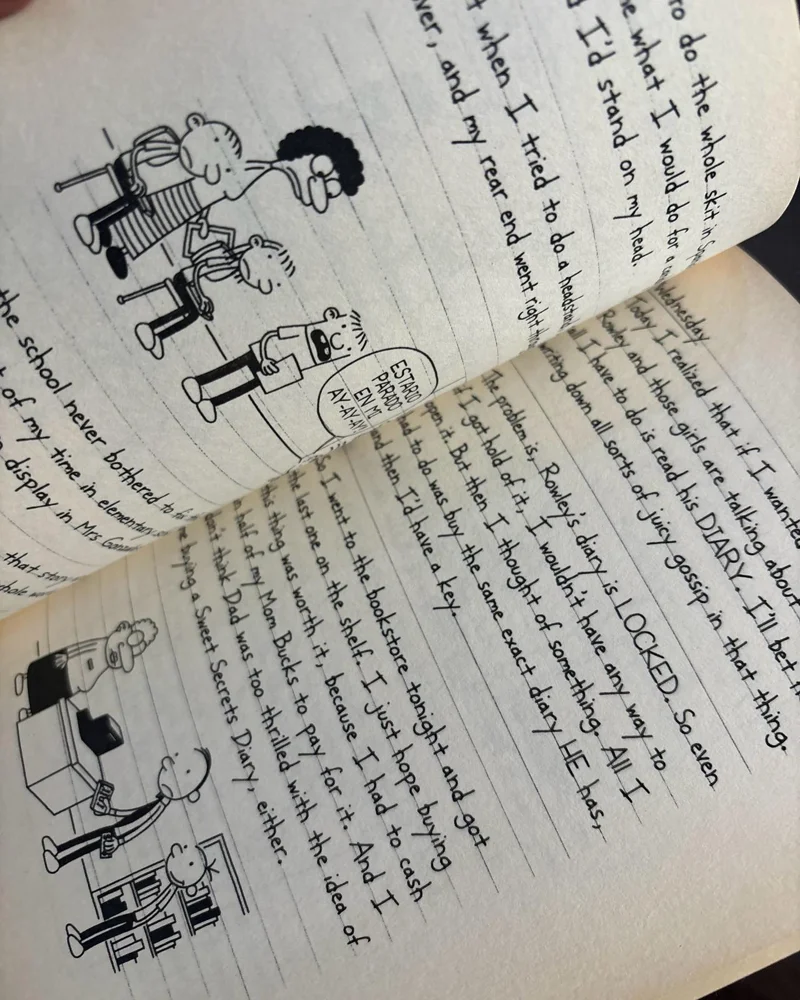 to do the whole skit in
what I would do for a
I'd stand on my head.
when I tried to do a
and my rear end went right
ESTARO
PARADO
EN MI
AY-AY-AY
the school never bothered to
of my time in elementary
display in Mrs.
that
Wednesday
Today I realized that if I wanted
Rowley and those girls are talking about
all I have to do is read his DIARY. I'll bet
writing down all sorts of juicy gossip in that thing.
The problem is, Rowley's diary is LOCKED. So even
if I got hold of it, I wouldn't have any way to
open it. But then I thought of something. All I
had to do was buy the same exact diary HE has,
and then I'd have a key.
So I went to the bookstore tonight and got
the last one on the shelf. I just hope buying
this thing was worth it, because I had to cash
in half of my Mom Bucks to pay for it. And I
don't think Dad was too thrilled with the idea of
me buying a Sweet Secrets Diary, either.